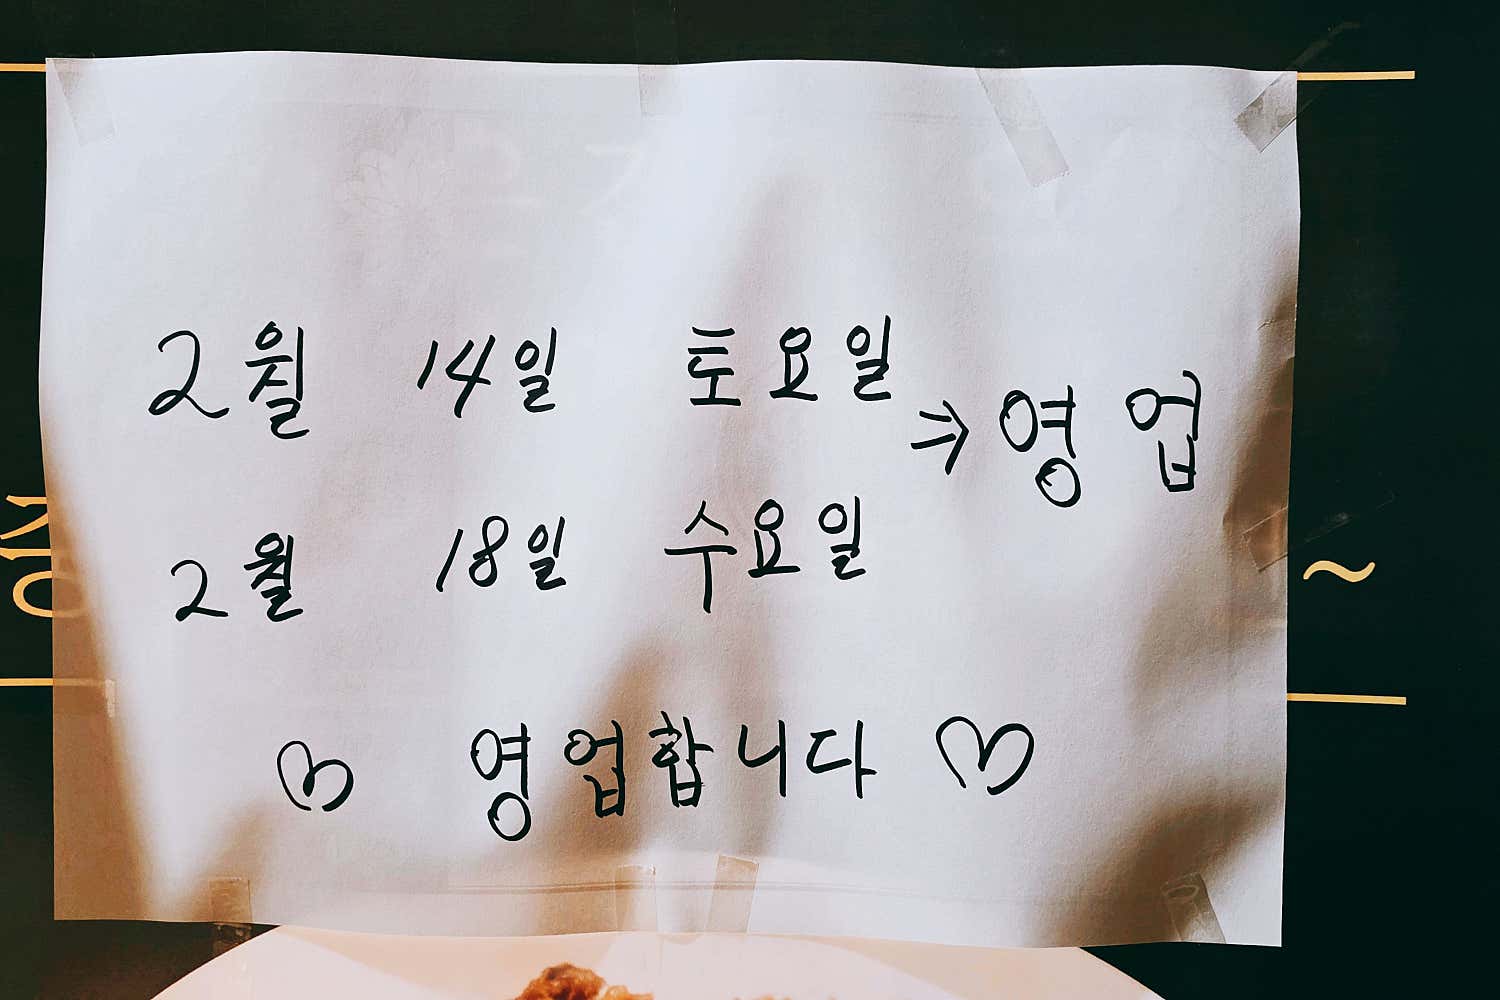 2월 14일 토요일 ⇒ 영업
2월 18일 수요일
♡ 영업합니다 ♡
~